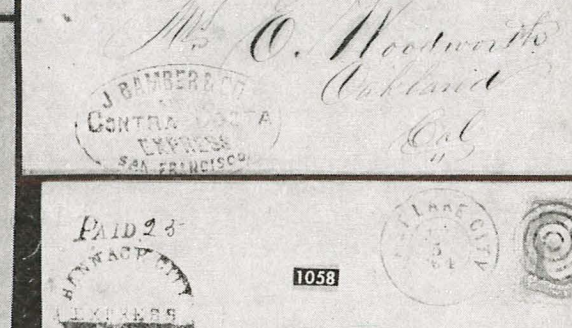 Mrs E. Woodworth
Oakland
Cal
J BAMBER & CO
CONTRA COSTA
EXPRESS
SAN FRANCISCO
PAID 25
BANNACK CITY
EXPRESS
1058
LAKE CITY